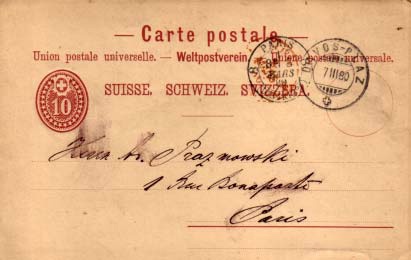 — Carte postale. —
Union postale universelle. — Weltpostverein. — Unione postale universale.
SUISSE. SCHWEIZ. SVIZZERA.
10
PARIS
MARS
DAVOS-PLATZ
7 III 80
Herrn Dr. Praznowski
1 Rue Bonaparte
Paris